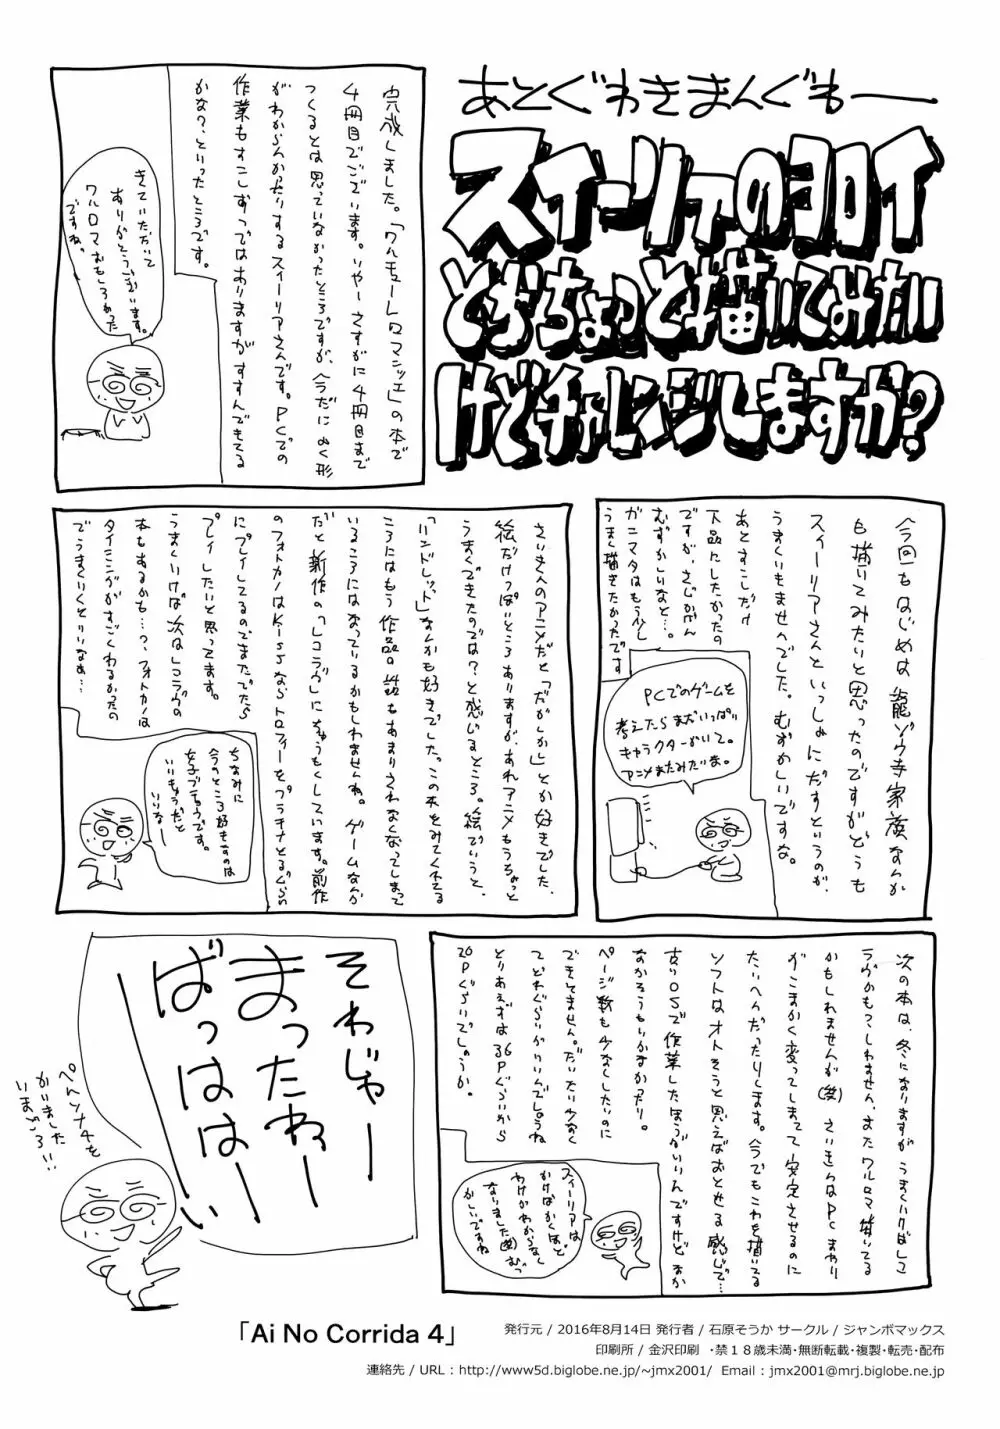 あとぐわきまんぐわー
スイーリアのヨロイ
とぎちょっと描いてみたい
けどチャレンジしますか?
完成しました。「ワルキューレロマンツェ」の本で
4冊目でございます。いやーさすがに4冊目まで
つくるとは思っていなかったところですが、今だにぬぐ形
がわからんかったりするスイーリアさんです。PCでの
作業もすこしずつではありますがすすんでもてる
かな?、といったところです。
きていただいて
ありがとうございます。
ワルロマおもしろかった
ですね。
今回もはじめは龍造寺家族なんか
も描いてみたいと思ったのですがどうも
スイーリアさんといっしょにだすというのが、
うまくいきませんでした。むずかしいですな。
あとすこしだけ
下品にしたかったの
ですが、さじかげん
むずかしいなと…。
ガニマタはもう少し
うまく描きたかったです
PCでのゲームを
考えたらまだいっぱい
キャラクターがいて。
アニメまたみたいな。
さいきんのアニメだと「だがしかし」とか好きでした、
絵だけっぽいところありますが、あれアニメもうちょっと
うまくできたのでは?と感じるところ。絵でいうと、
「ハンドレッド」なんかも好きでした。この本をみてくれてる
ころにはもう作品の話もあまりされなくなってしまって
いるころにはなっているかもしれませんね。ゲームなんか
だと新作の「レコラヴ」にちゅうもくしています。前作
のフォトカノはKissならトロフィーをプラチナとるぐらい
にプレイしてるのでまたでたら
プレイしたいと思ってます。
うまくいけば次はレコラヴの
本もあるかも…?、フォトカノは
タイミングがすごくわるかったの
でうまくいくといいなぁ…
ちなみに
今のところ好きなのは
女子プチョウです。
いいもうだと
いいなー
次の本は、冬になりますがうまくハクばしして
ラヴかもっこしれません、またワルロマ描いてる
かもしれませんが(笑) さいきんはPCまわり
がこまかく変ってしまって安定させるのに
たいへんだったりします。今でもこれを描いてる
ソフトはオトそうと思えばおとせる感じで…
古いOSで作業したほうがいいんですけどなか
なかそうもいかなかったり。
ページ数も少なくしたいのに
できてません。だいたいわなく
てどれぐらいがいいんでしょうね
とりあえずは36Pぐらいから
20Pぐらいでしょうか。
スイーリアは
かけばかくほど
わけがわからなく
なりました(笑)むづ
かしいですね
それじゃー
まったねー
ばっははーい
ペルソナ4を
かいました
いまごろ!!
「Ai No Corrida 4」
発行元 / 2016年8月14日 発行者 / 石原そうか サークル / ジャンボマックス
印刷所 / 金沢印刷 ・禁18歳未満・無断転載・複製・転売・配布
連絡先 / URL : http://www5d.biglobe.ne.jp/~jmx2001/ Email : jmx2001@mrj.biglobe.ne.jp